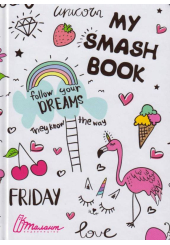 unicorn
MY
SMASH
BOOK
follow your
DREAMS
they know the way
FRIDAY
Талант
love